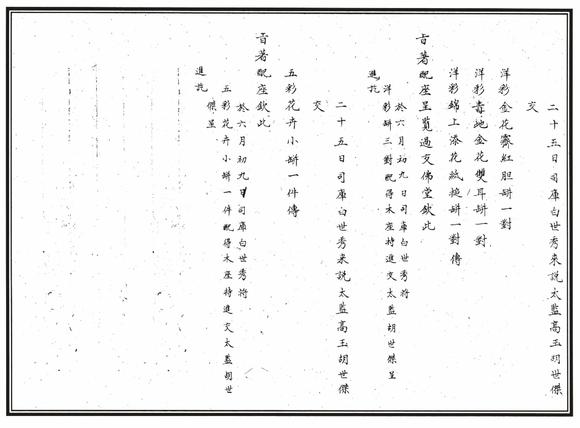 二十五日司庫白世秀來說太監高玉胡世傑
交
洋彩金花霽紅胆缾一對
洋彩青地金花雙耳缾一對
洋彩錦上添花紙搥缾一對傳
旨著配座呈覧過交佛堂欽此
於六月初九日司庫白世秀將
洋彩缾三對配得木座持進交太監胡世傑呈
進訖
二十五日司庫白世秀來說太監高玉胡世傑
交
五彩花卉小缾一件傳
旨著配座欽此
於六月初九日司庫白世秀將
五彩花卉小缾一件配得木座持進交太監胡世
傑呈
進訖